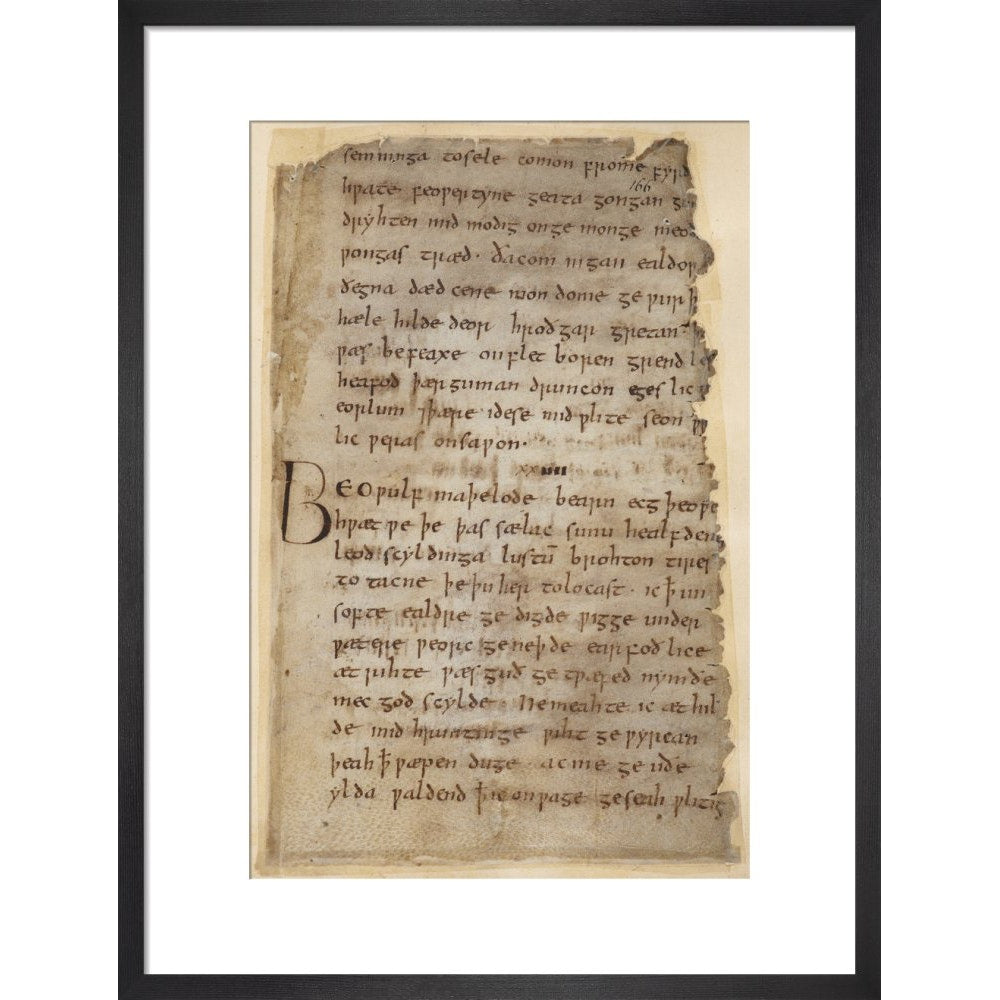 semninga tosele comon frome fyrd
hƿate feoƿertyne geata gongan gu
166
dryhten mid modig onge monge meodo
ƿongas træd · ða com in gan ealdor
ðegna dæd cene mon dome ge ƿurþ
hæle hilde deor hroðgar gretan
ƿæs be feaxe on flet boren grendles
heafod þær guman druncon eges lic
eorlum ⁊ þære idese mid ƿlite seon
lic ƿeras onsaƿon ·
xxiiii
BEOƿulf maþelode bearn ecg þeoƿes
hƿæt ƿe þe þas sælac sunu healfdenes
leod scyldinga lustū brohton tires
to tacne þe þu her to locast · ic ꝥ un
softe ealdre ge digde ƿigge under
ƿætere ƿeorc geneþde earfoð lice
æt rihte ƿæs guð ge tƿæfed nymðe
mec god scylde · Ne meahte ic æt hil
de mid hruntinge ƿiht ge ƿyrcan
þeah ꝥ ƿæpen duge · ac me ge uðe
ylda ƿaldend ꝥ ic on ƿage geseah ƿlitig